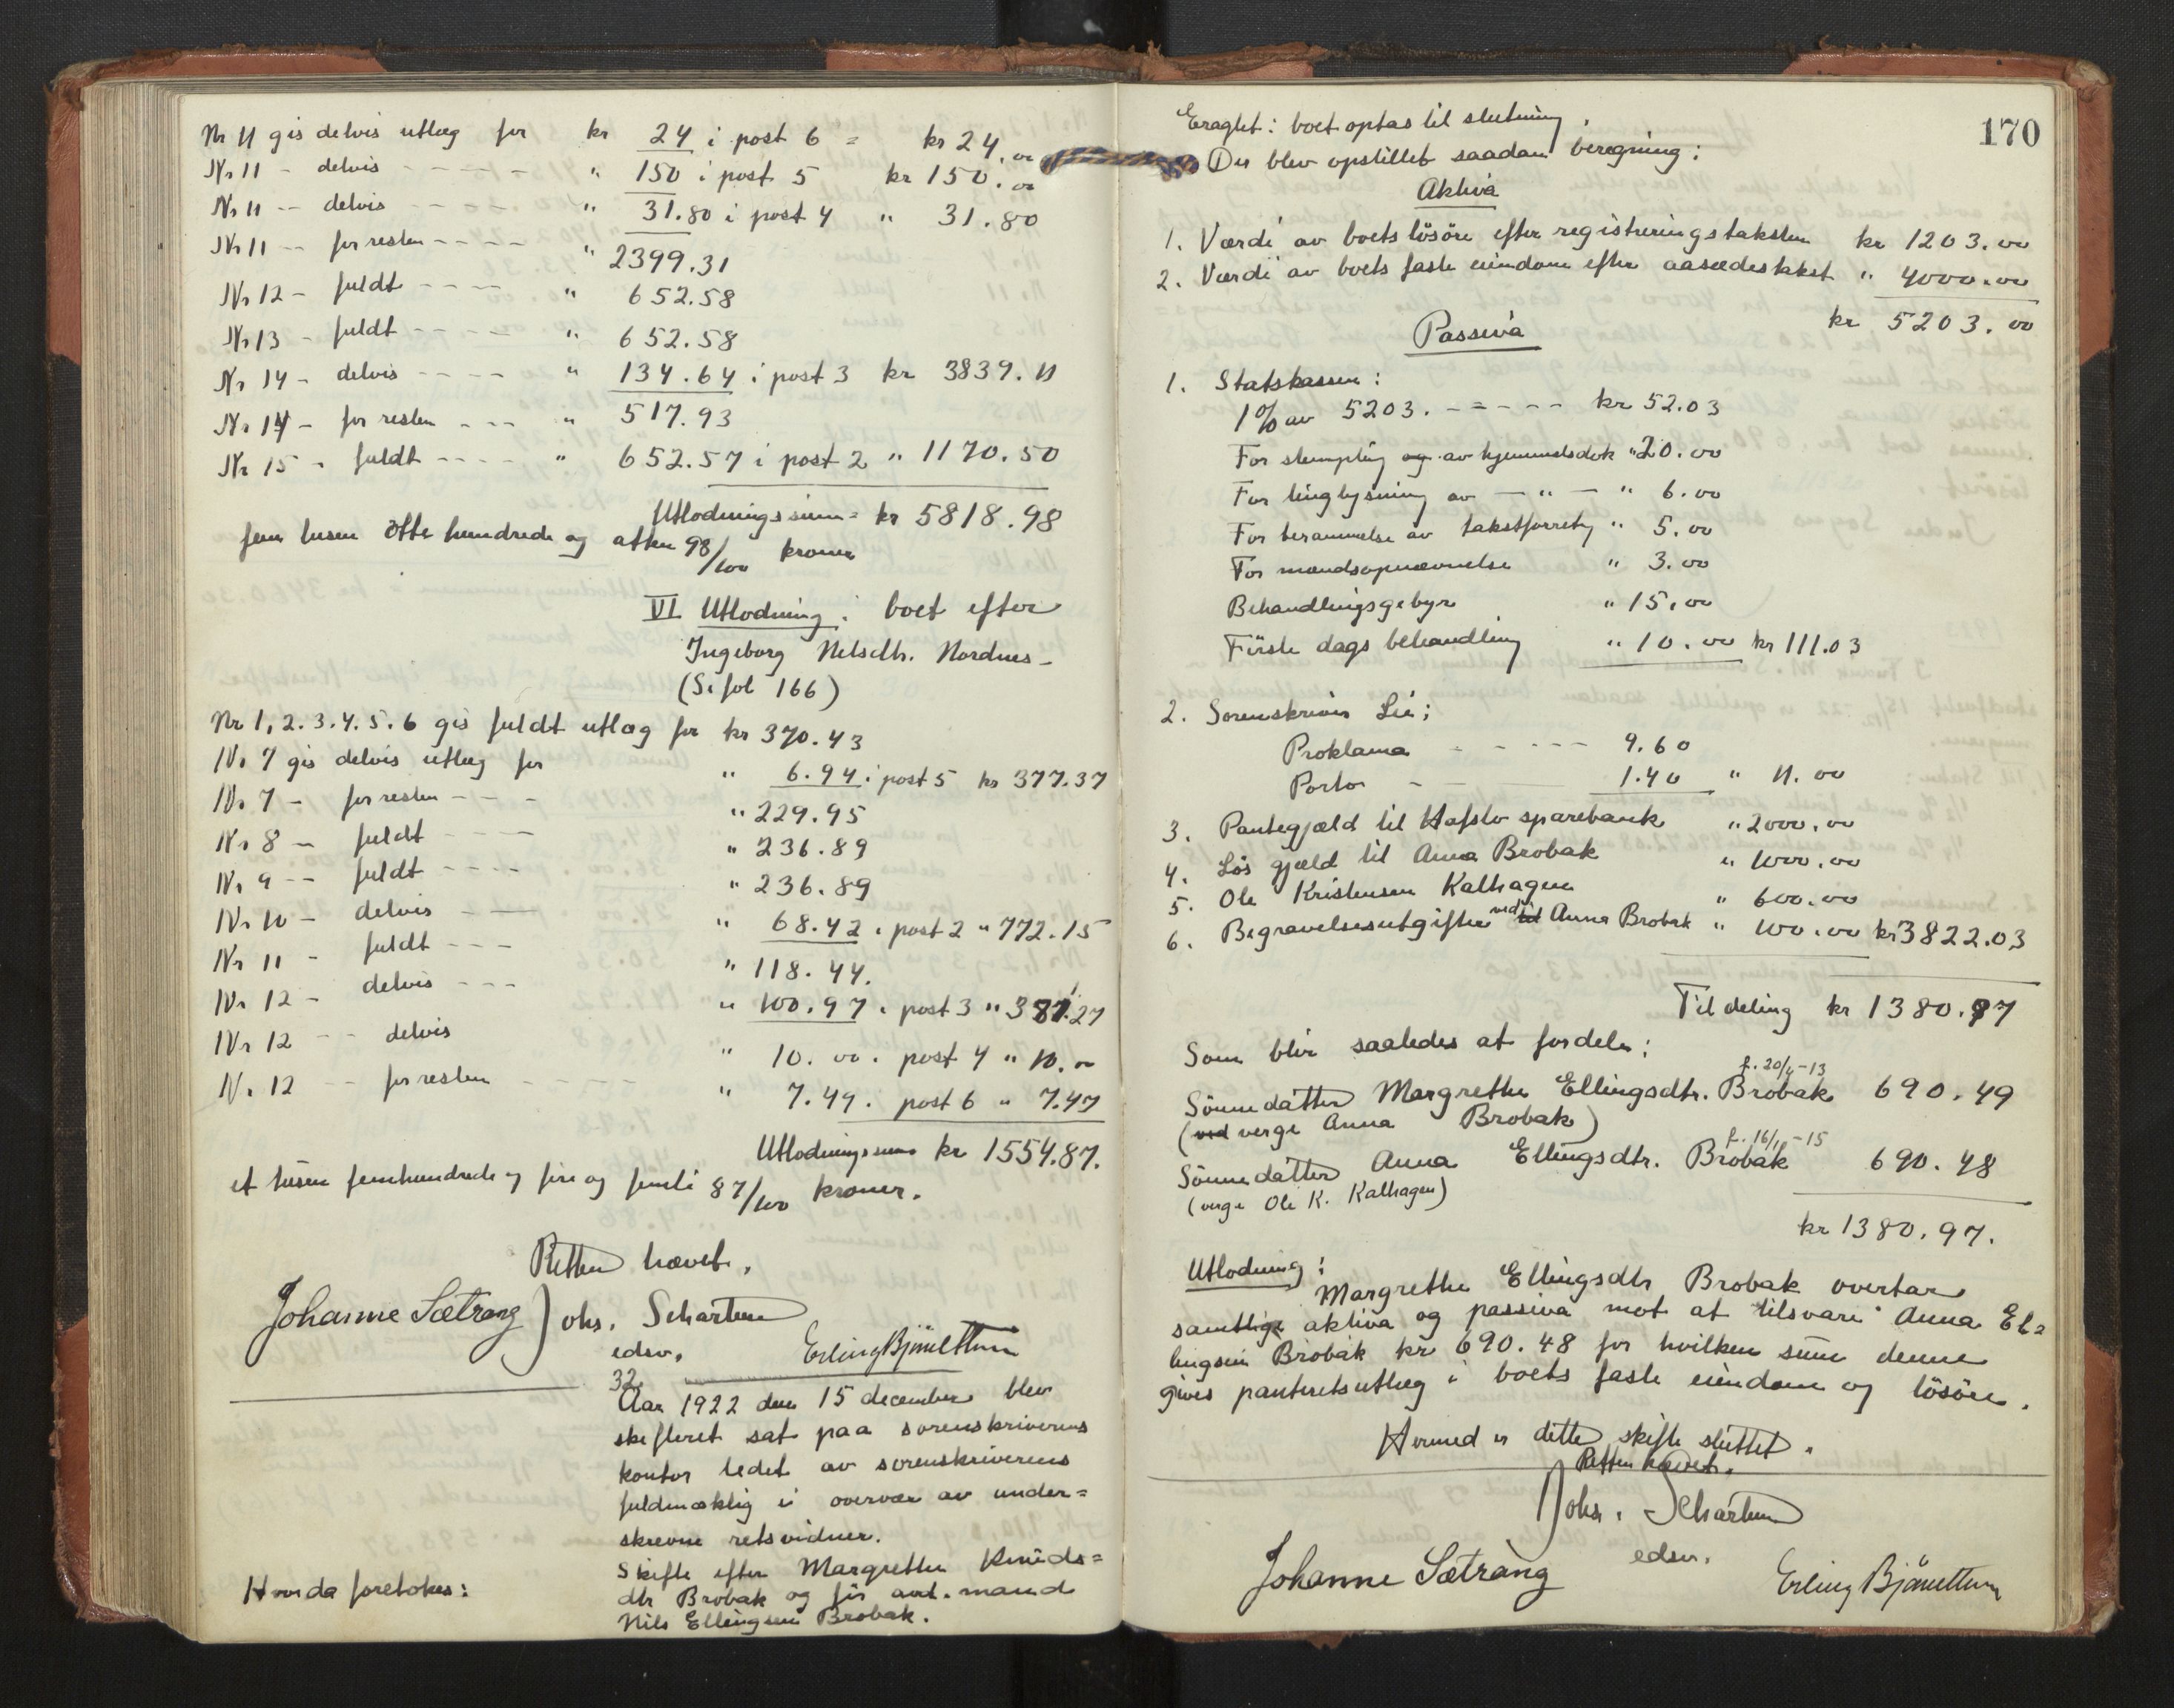 Nr 11 gis delvis utlæg for kr 24 i post 6 = kr 24.00
Nr 11 - delvis - - - - - " 150 i post 5 kr 150.00
Nr 11 -- delvis - - - - " 31.80 i post 4 " 31.80
Nr 11 -- for resten - - - - " 2399.31
Nr 12 - fuldt - - - - " 652.58
Nr 13 - fuldt - - - - " 652.58
Nr 14 - delvis - - - - " 134.64 i post 3 kr 3839.11
Nr 14 - for resten - - - " 517.93
Nr 15 - fuldt - - - - " 652.57 i post 2 " 1170.50
Utlodningssum = kr 5818.98
fem tusen otte hundrede og atten 98/100 kroner
VI Utlodning i boet efter
Ingeborg Nelsdtr. Nordnes -
(Se fol 166)
Nr 1, 2. 3. 4. 5. 6 gis fuldt utlæg for kr 370.43
Nr 7 gis delvis utlæg for " 6.94 i post 5 kr 377.37
Nr 7 - for resten - - - " 229.95
Nr 8 - fuldt - - - " 236.89
Nr 9 -- fuldt - - - - " 236.89
Nr 10 - delvis - - " 68.42 i post 2 " 772.15
Nr 11 - fuldt - - - " 118.44.
Nr 12 - delvis - - - " 100.97 i post 3 " 387.27
Nr 12 -- delvis " 10.00 i post 4 " 10.00
Nr. 12 -- for resten - - - - " 7.47 i post 6 " 7.47
Utlodningssum kr 1554.87.
et tusen femhundrede og fire og femti 87/100 kroner.
Retten hævet.
Johanne Sætrang Johs. Scharttun
edsv. Erling Bjönettum
32
Aar 1922 den 15 december blev
skifteret sat paa sorenskriverens
kontor ledet av sorenskriverens
fuldmæktig i overvær av under=
skrevne retsvidner.
Hvorda foretokes: Skifte efter Margrethe Knuds=
dtr Brobak og før avd. mand
Nils Ellingsen Brobak.
170
Eragtet: boet optas til slutning.
Der blev opstillet saadan beregning:
Aktiva
1. Værdi av boets løsøre efter registreringstaksten kr 1203.00
2. Værdi av boets faste eiendom efter aasædestakst " 4000.00
kr 5203.00
Passiva
1. Statskassen:
1 % av 5203. - = - - - kr 52.03
For stempling og av hjemmelsdok " 20.00
For tinglysning av — " — " 6.00
For berammelse av takstforretng " 5.00
For mændsopnævnelse " 3.00
Behandlingsgebyr " 15.00
Første dags behandling " 10.00 kr 111.03
2. Sorenskriver Lie:
Proklama - - - - - 9.60
Porto - 1.40 " 11.00
3. Pantegjæld til Hafslo sparebank " 2000.00
4. Løs gjæld til Anna Brobak " 1000.00
5. Ole Kristensen Kalhagen " 600.00
6. Begravelsesutgifter ved til Anna Brobak " 100.00 kr 3822.03
Til deling kr 1380.97
Som blir saaledes at fordele:
f. 20/4-13
Sønnedatter Margrethe Ellingsdtr. Brobak 690.49
(ved verge Anna Brobak)
f. 16/11-15
Sønnedatter Anna Ellingsdtr. Brobak 690.48
(verge Ole K. Kalhagen)
kr 1380.97.
Utlodning:
Margrethe Ellingsdtr Brobak overtar
samtlige aktiva og passiva mot at tilsvare Anna El=
lingsen Brobak kr 690.48 for hvilken sum denne
gives panteretsutlæg i boets faste eiendom og løsøre.
Hermed er dette skifte sluttet.
Retten hævet.
Johs. Scharttun
edsv.
Johanne Sætrang Erling Bjönettum